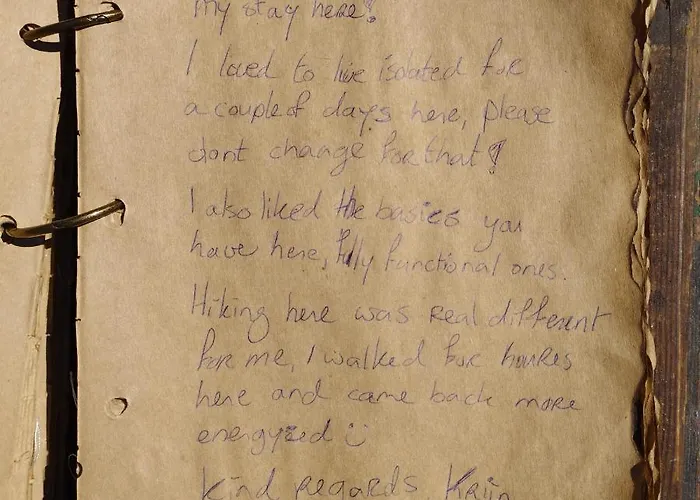 my stay here!
I loved to live isolated for
a couple of days here, please
dont change for that!
I also liked the basics you
have here, fully functional ones.
Hiking here was real different
for me, I walked for houres
here and came back more
energyzed ☺
Kind regards